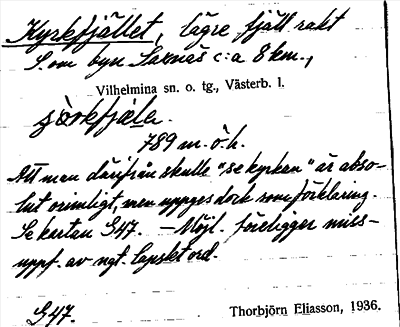 Kyrkfjället, lägre fjäll rakt
S. om byn Saxnäs c:a 8 km.,
Vilhelmina sn. o. tg., Västerb. l.
789 m. ö. h.
Att man därifrån skulle "se kyrkan" är abso-
lut orimligt, men uppges dock som förklaring.
Se kartan S47. – Möjl. föreligger miss-
uppf. av ngt. lapskt ord.
S47.
Thorbjörn Eliasson, 1936.